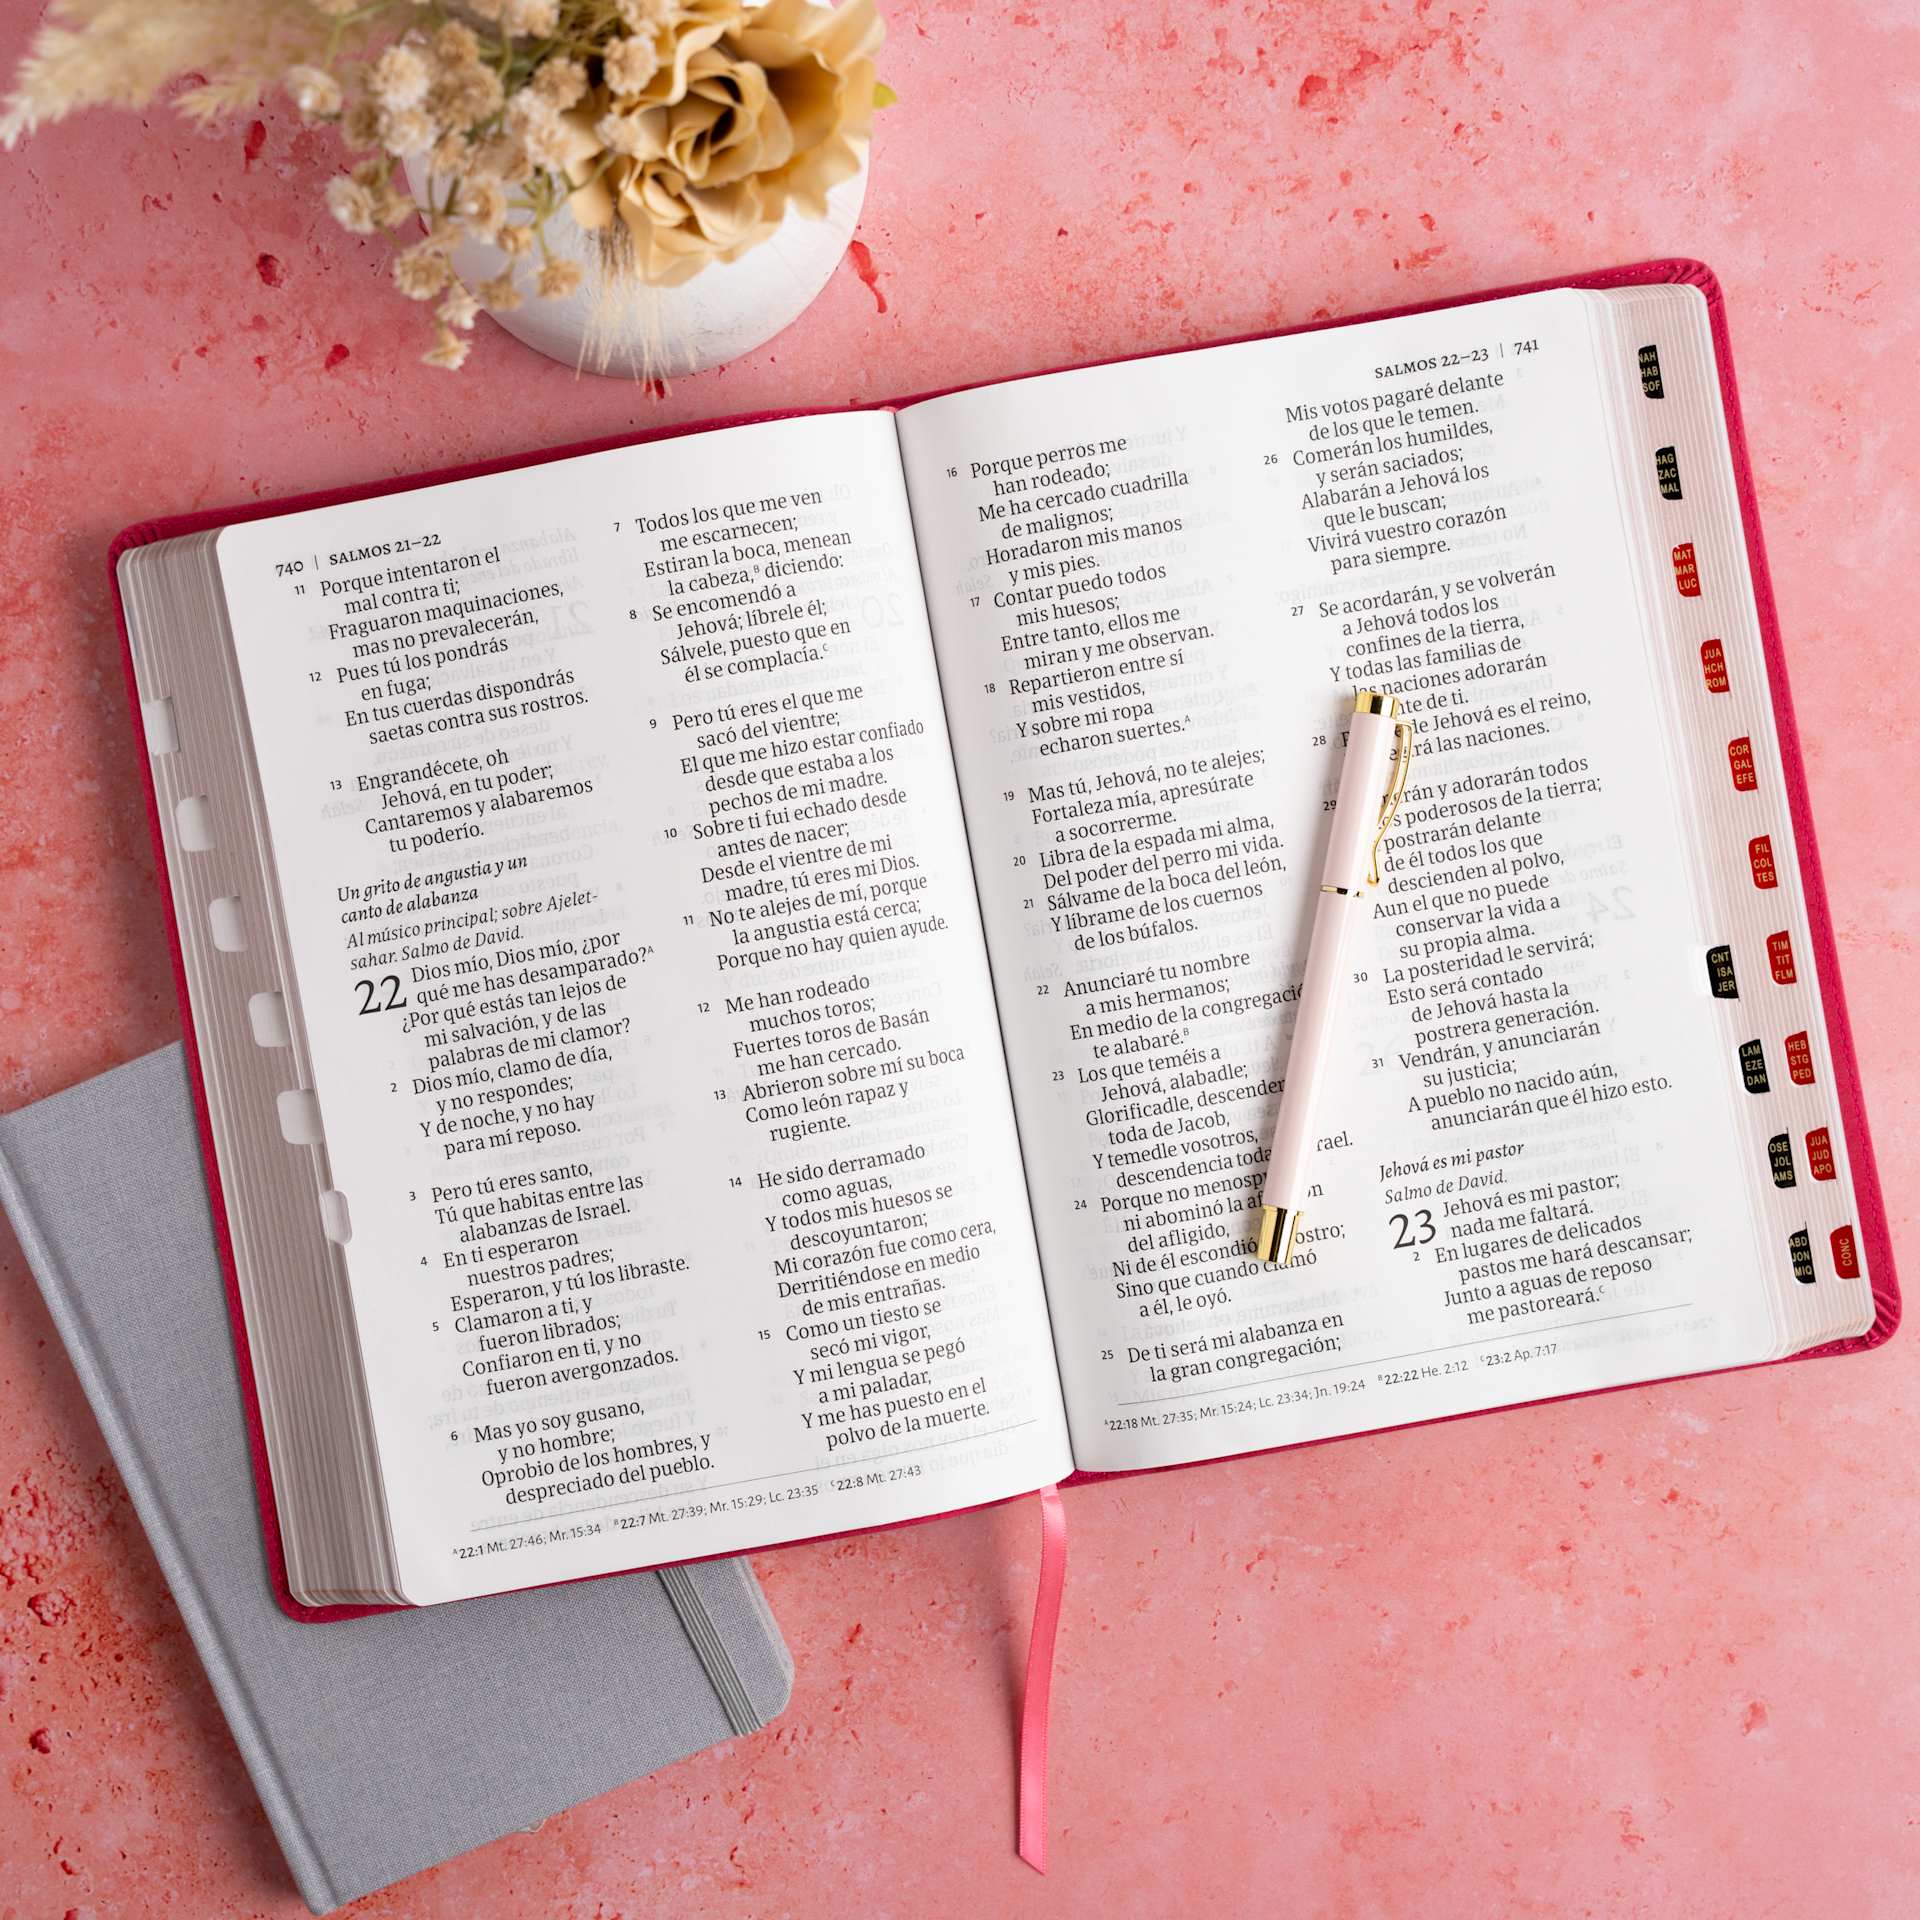 740 | SALMOS 21–22
11 Porque intentaron el
mal contra ti;
Fraguaron maquinaciones,
mas no prevalecerán,
12 Pues tú los pondrás
en fuga;
En tus cuerdas dispondrás
saetas contra sus rostros.
13 Engrandécete, oh
Jehová, en tu poder;
Cantaremos y alabaremos
tu poderío.
Un grito de angustia y un
canto de alabanza
Al músico principal; sobre Ajelet-
sahar. Salmo de David.
22 Dios mío, Dios mío, ¿por
qué me has desamparado?A
¿Por qué estás tan lejos de
mi salvación, y de las
palabras de mi clamor?
2 Dios mío, clamo de día,
y no respondes;
Y de noche, y no hay
para mí reposo.
3 Pero tú eres santo,
Tú que habitas entre las
alabanzas de Israel.
4 En ti esperaron
nuestros padres;
Esperaron, y tú los libraste.
5 Clamaron a ti, y
fueron librados;
Confiaron en ti, y no
fueron avergonzados.
6 Mas yo soy gusano,
y no hombre;
Oprobio de los hombres, y
despreciado del pueblo.
7 Todos los que me ven
me escarnecen;
Estiran la boca, menean
la cabeza,B diciendo:
8 Se encomendó a
Jehová; líbrele él;
Sálvele, puesto que en
él se complacía.C
9 Pero tú eres el que me
sacó del vientre;
El que me hizo estar confiado
desde que estaba a los
pechos de mi madre.
10 Sobre ti fui echado desde
antes de nacer;
Desde el vientre de mi
madre, tú eres mi Dios.
11 No te alejes de mí, porque
la angustia está cerca;
Porque no hay quien ayude.
12 Me han rodeado
muchos toros;
Fuertes toros de Basán
me han cercado.
13 Abrieron sobre mí su boca
Como león rapaz y
rugiente.
14 He sido derramado
como aguas,
Y todos mis huesos se
descoyuntaron;
Mi corazón fue como cera,
Derritiéndose en medio
de mis entrañas.
15 Como un tiesto se
secó mi vigor,
Y mi lengua se pegó
a mi paladar,
Y me has puesto en el
polvo de la muerte.
A22:1 Mt. 27:46; Mr. 15:34 B22:7 Mt. 27:39; Mr. 15:29; Lc. 23:35 C22:8 Mt. 27:43
SALMOS 22–23 | 741
16 Porque perros me
han rodeado;
Me ha cercado cuadrilla
de malignos;
Horadaron mis manos
y mis pies.
17 Contar puedo todos
mis huesos;
Entre tanto, ellos me
miran y me observan.
18 Repartieron entre sí
mis vestidos,
Y sobre mi ropa
echaron suertes.A
19 Mas tú, Jehová, no te alejes;
Fortaleza mía, apresúrate
a socorrerme.
20 Libra de la espada mi alma,
Del poder del perro mi vida.
21 Sálvame de la boca del león,
Y líbrame de los cuernos
de los búfalos.
22 Anunciaré tu nombre
a mis hermanos;
En medio de la congregació
te alabaré.B
23 Los que teméis a
Jehová, alabadle;
Glorificadle, descenden
toda de Jacob,
Y temedle vosotros,
descendencia toda rael.
24 Porque no menosp
ni abominó la af
del afligido,
Ni de él escondió ostro;
Sino que cuando clamó
a él, le oyó.
25 De ti será mi alabanza en
la gran congregación;
Mis votos pagaré delante
de los que le temen.
26 Comerán los humildes,
y serán saciados;
Alabarán a Jehová los
que le buscan;
Vivirá vuestro corazón
para siempre.
27 Se acordarán, y se volverán
a Jehová todos los
confines de la tierra,
Y todas las familias de
las naciones adorarán
nte de ti.
28 de Jehová es el reino,
rá las naciones.
29 rán y adorarán todos
os poderosos de la tierra;
postrarán delante
de él todos los que
descienden al polvo,
Aun el que no puede
conservar la vida a
su propia alma.
30 La posteridad le servirá;
Esto será contado
de Jehová hasta la
postrera generación.
31 Vendrán, y anunciarán
su justicia;
A pueblo no nacido aún,
anunciarán que él hizo esto.
Jehová es mi pastor
Salmo de David.
23 Jehová es mi pastor;
nada me faltará.
2 En lugares de delicados
pastos me hará descansar;
Junto a aguas de reposo
me pastoreará.C
A22:18 Mt. 27:35; Mr. 15:24; Lc. 23:34; Jn. 19:24 B22:22 He. 2:12 C23:2 Ap. 7:17
NAH
HAB
SOF
HAG
ZAC
MAL
MAT
MAR
LUC
JUA
HCH
ROM
COR
GAL
EFE
FIL
COL
TES
CNT
ISA
JER
TIM
TIT
FLM
LAM
EZE
DAN
HEB
STG
PED
OSE
JOL
AMS
JUA
JUD
APO
ABD
JON
MIQ
CONC